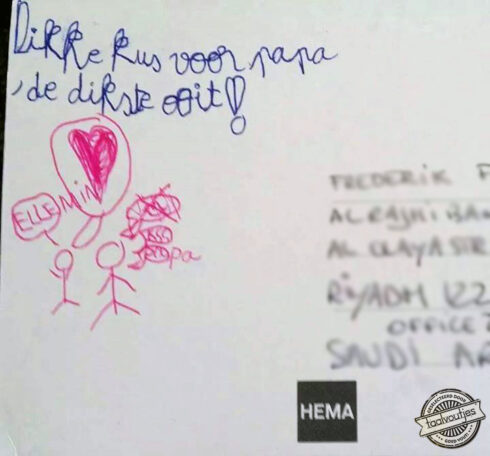 Dikke kus voor papa
, de dikste ooit!
ELLE
MIN
pa
FREDERIK F
AL RAJHI BAN
AL OLAYA STR
RIYADH 122
OFFICE 7
SAUDI AR
HEMA
GESELECTEERD DOOR
taalvoutjes
GOED FOUT!